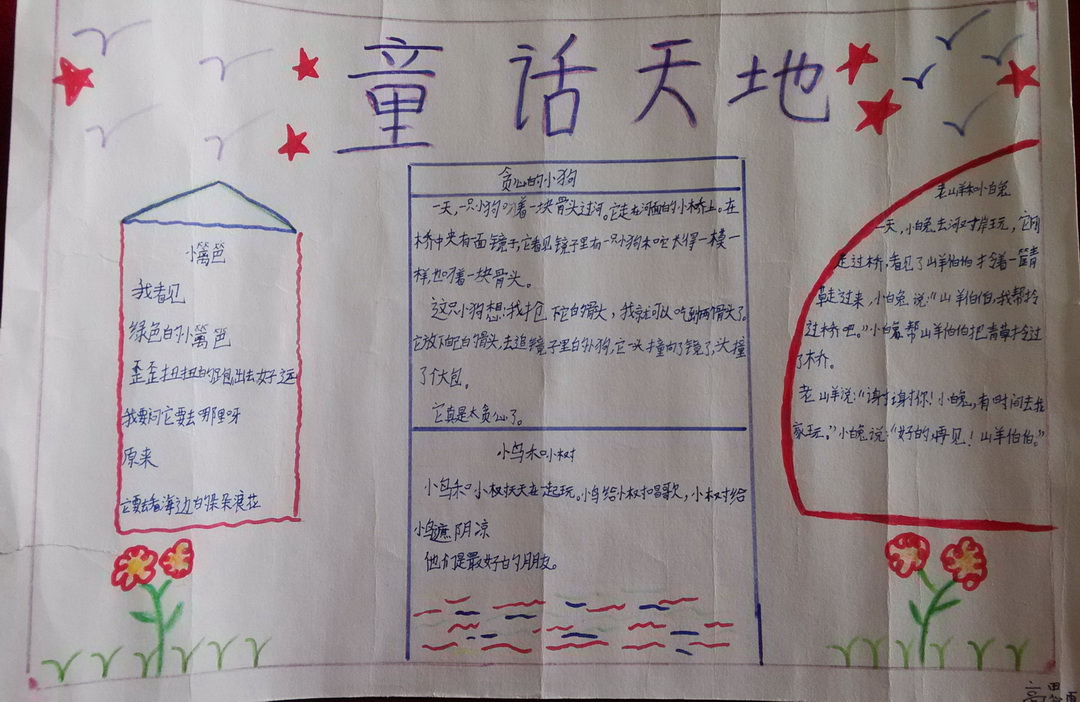 童话天地
小篱笆
我看见
绿色的小篱笆
歪歪扭扭的跑出去好远
我要问它要去哪里呀
原来
它要去看海边的朵朵浪花
贪心的小狗
一天，一只小狗叼着一块骨头过河。它走在河面的小桥上。在
桥中央有面镜子，它看见镜子里有一只小狗和它长得一模一
样，也叼着一块骨头。
这只小狗想：我抢下它的骨头，我就可以吃到两骨头了。
它放下自己的骨头，去追镜子里的小狗，它一头撞向了镜子，头撞
了个大包。
它真是太贪心了。
小鸟和小树
小鸟和小树天天在一起玩。小鸟给小树唱歌，小树给
小鸟遮阴凉
他们是最好的朋友。
老山羊和小白兔
一天，小白兔去河对岸玩，它刚
走过桥，看见了山羊伯伯拎着一篮青
草走过来，小白兔说：“山羊伯伯，我帮拎
过桥吧。”小白兔帮山羊伯伯把青草拎过
了木桥。
老山羊说：“谢谢你！小白兔，有时间去我
家玩。”小白兔说：“好的，再见！山羊伯伯。”